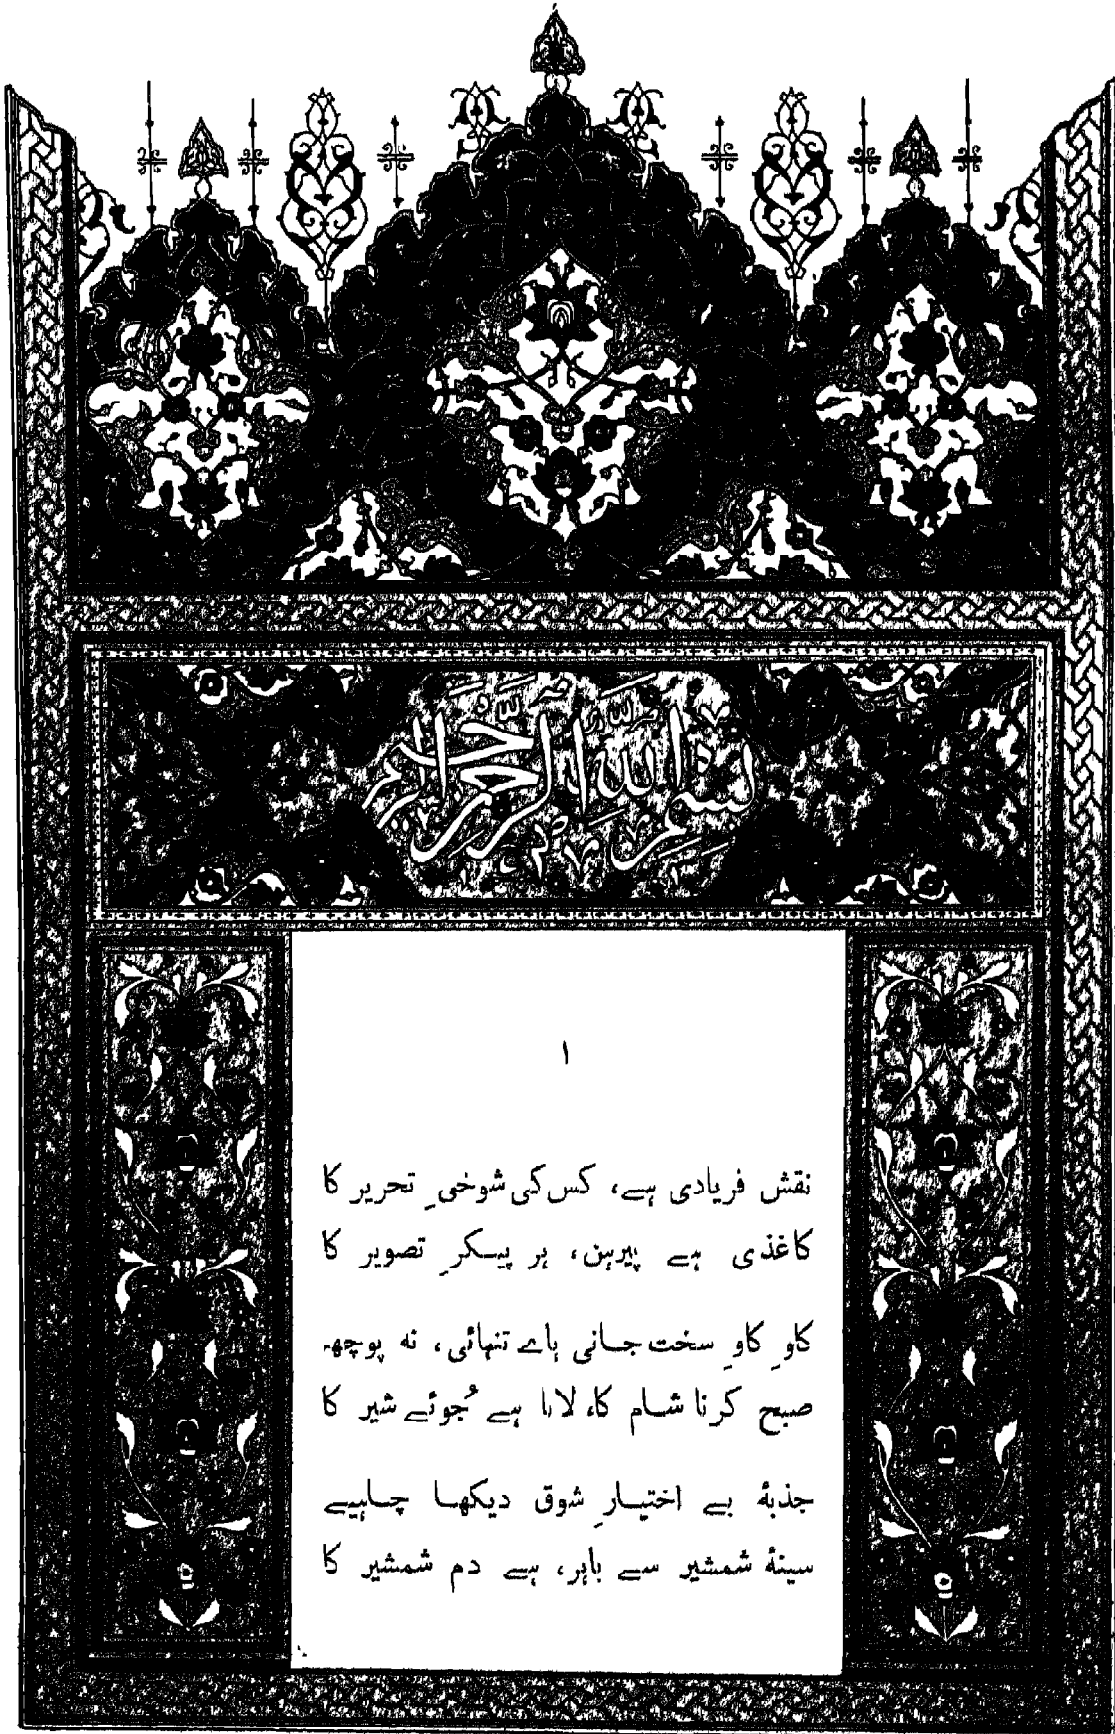 بسم الله الرحمن الرحیم
۱
نقش فریادی ہے، کس کی شوخیِ تحریر کا
کاغذی ہے پیرہن، ہر پیکرِ تصویر کا
کاوِ کاوِ سخت جانی ہاے تنہائی، نہ پوچھ
صبح کرنا شام کا، لانا ہے جُوئے شیر کا
جذبۂ بے اختیارِ شوق دیکھا چاہیے
سینۂ شمشیر سے باہر، ہے دم شمشیر کا